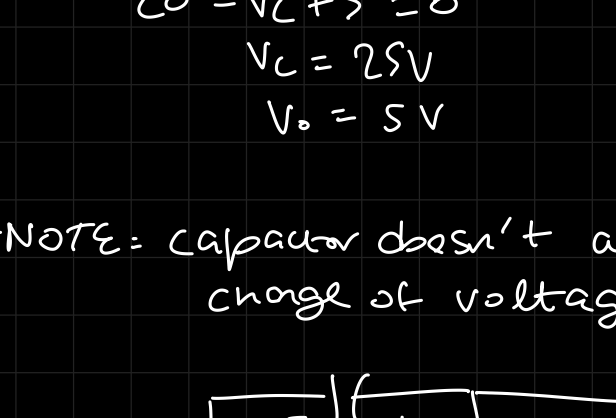 20 - Vc + 5 = 0
Vc = 25V
Vo = 5 V
NOTE: capacitor doesn't a
change of voltag